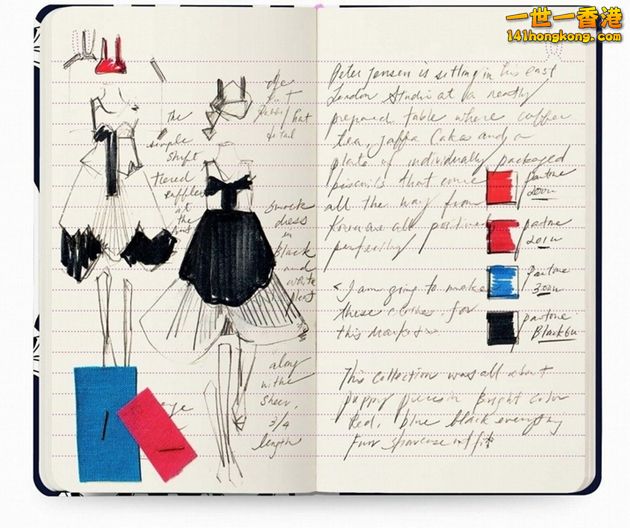 一世一香港
141hongkong.com
The
simple
shift
Tiered
ruffles
at
the
hat
detail
Smock
dress
in
black
and
white
along
with
sheer
3/4
length
Peter Jensen is sitting in his east
London Studio at a neatly
prepared table where coffee
tea, Jaffa Cakes and a
plate of individually packaged
biscuits that come
all the way from
Korea are all positioned
perfectly
"I am going to make
these clothes for
this
This collection was all about
poppy pieces in Bright color
Red, blue black everything
Fun
pantone
200u
pantone
201u
Pantone
300u
pantone
Black 6u